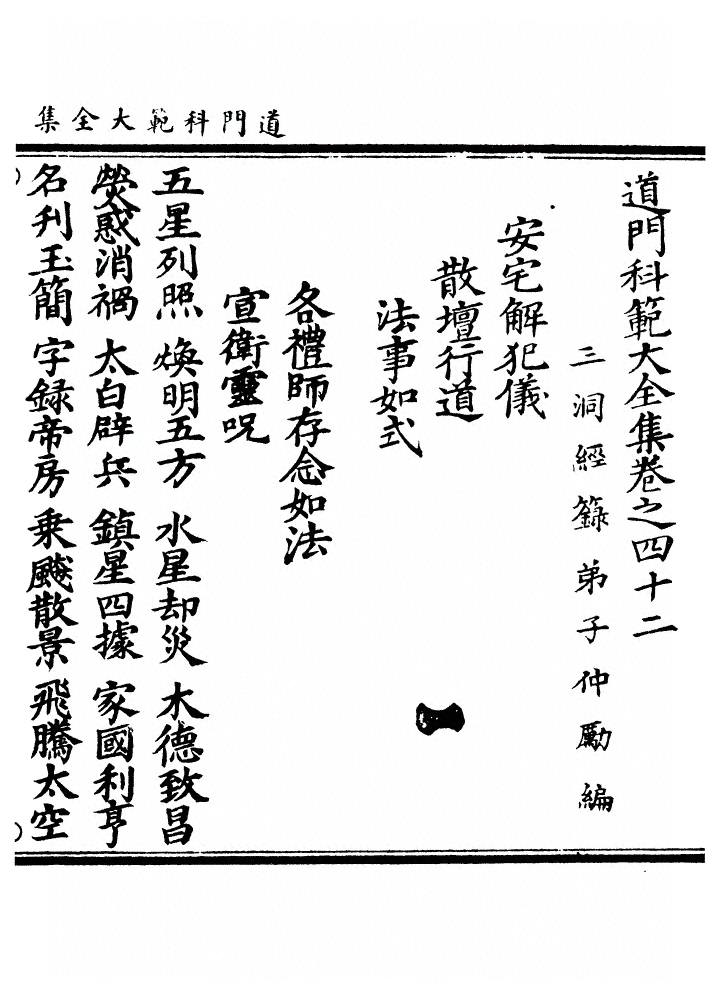 道門科範大全集
道門科範大全集卷之四十二
三洞經籙弟子仲勵編
安宅解犯儀
散壇行道
法事如式
各禮師存念如法
宣衛靈呪
五星列照 煥明五方 水星却災 木德致昌
熒惑消禍 太白辟兵 鎮星四據 家國利亨
名刋玉簡 字録帝房 乗飈散景 飛騰太空